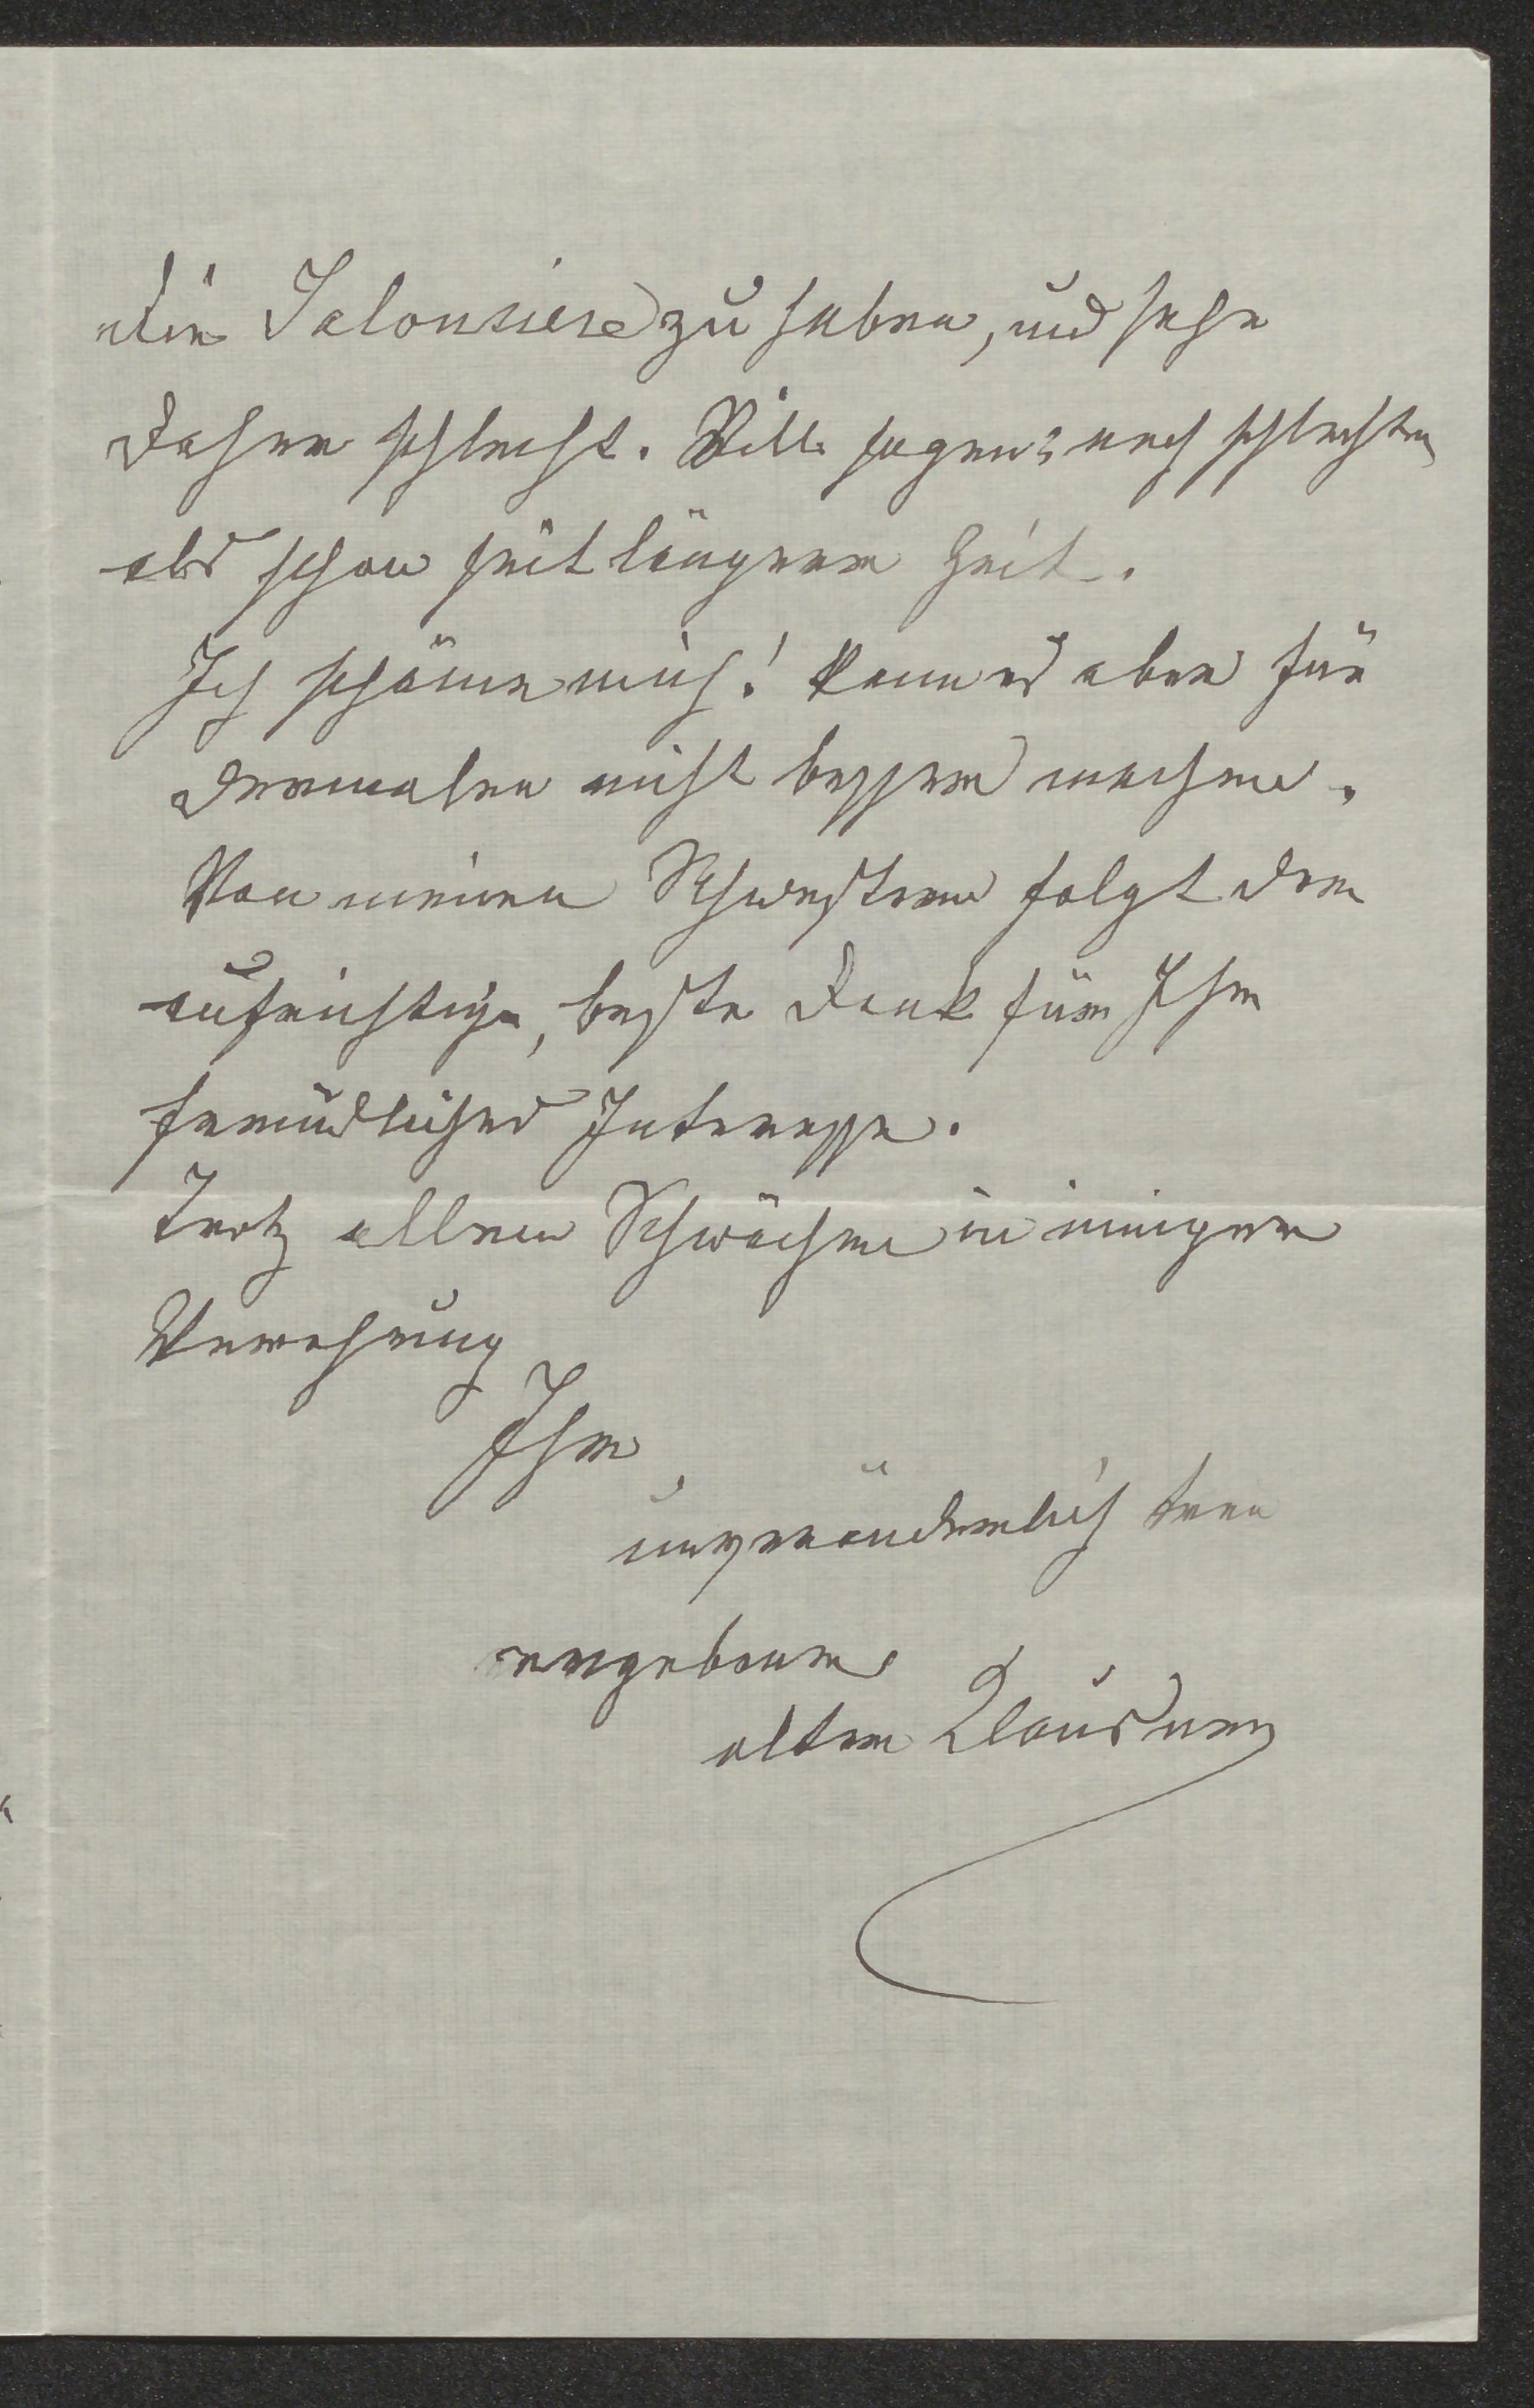 die Jalousiere zu haben, und sehe
daher schlecht. Will sagen: noch schlechter
als schon seit längerer Zeit.
Ich schäme mich! kann es aber für
dermalen nicht besser machen.
Von meinen Schwestern folgt der
aufrichtige, beste Dank für Ihr
freundliches Interesse.
Trotz allen Schwächen in inniger
Verehrung
Ihr
unveränderlich treu
ergebener
alter Klausner